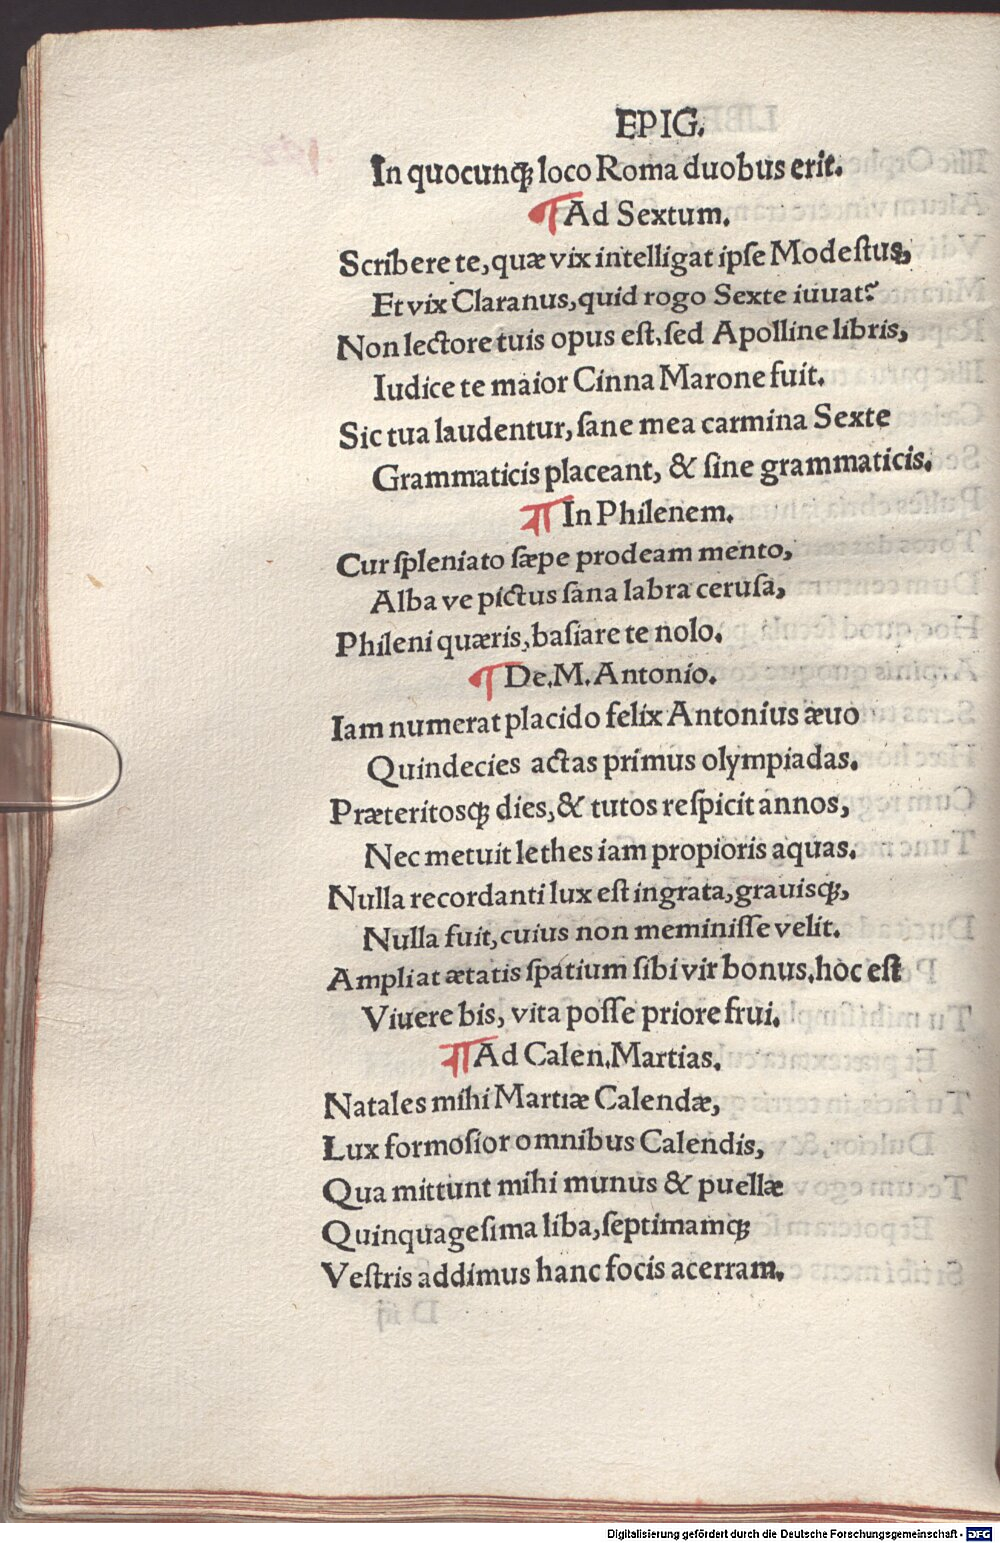 EPIG.
In quocunqꝫ loco Roma duobus erit.
¶ Ad Sextum.
Scribere te, quæ vix intelligat ipſe Modeſtus,
Et vix Claranus, quid rogo Sexte iuuat?
Non lectore tuis opus eſt, ſed Apolline libris,
Iudice te maior Cinna Marone fuit.
Sic tua laudentur, ſane mea carmina Sexte
Grammaticis placeant, & ſine grammaticis.
¶ In Philenem.
Cur ſpleniato ſæpe prodeam mento,
Alba ve pictus ſana labra ceruſa,
Phileni quæris, baſiare te nolo.
¶ De. M. Antonio.
Iam numerat placido felix Antonius æuo
Quindecies actas primus olympiadas.
Præteritosqꝫ dies, & tutos reſpicit annos,
Nec metuit lethes iam propioris aquas.
Nulla recordanti lux eſt ingrata, grauisqꝫ,
Nulla fuit, cuius non meminiſſe velit.
Ampliat ætatis ſpatium ſibi vir bonus, hoc eſt
Viuere bis, vita poſſe priore frui.
¶ Ad Calen. Martias.
Natales mihi Martiæ Calendæ,
Lux formoſior omnibus Calendis,
Qua mittunt mihi munus & puellæ
Quinquageſima liba, ſeptimamqꝫ
Veſtris addimus hanc focis acerram.
Digitalisierung gefördert durch die Deutsche Forschungsgemeinschaft - DFG